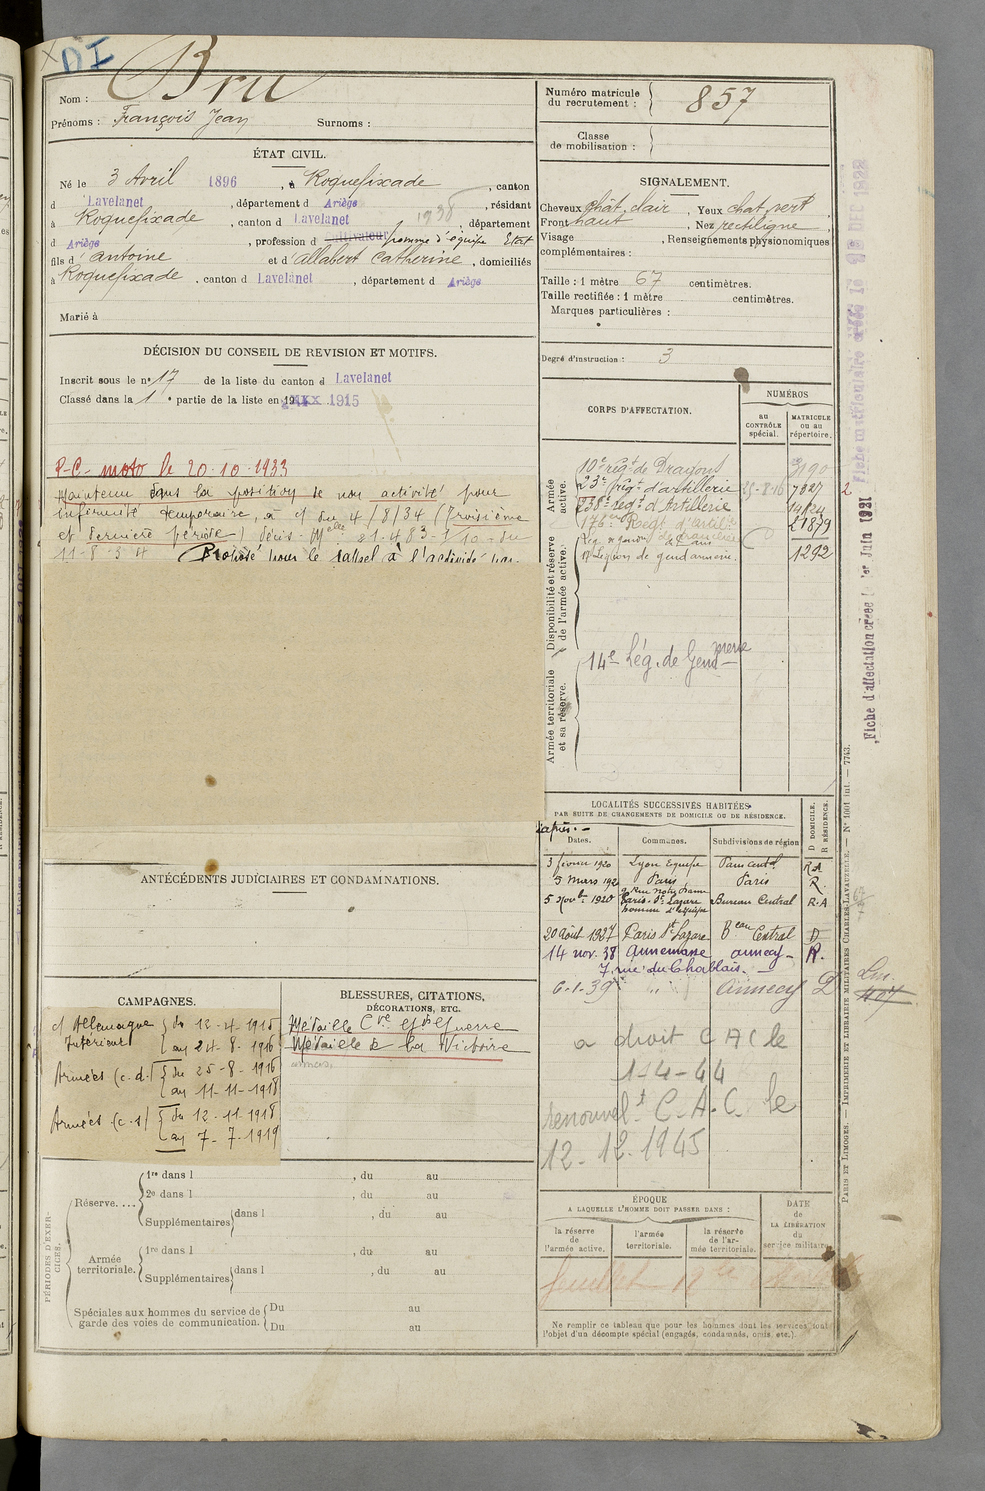 DI
Nom : Bru
Prénoms : François Jean Surnoms :
ÉTAT CIVIL.
Né le 3 Avril 1896, à Roquefixade, canton
d Lavelanet, département d Ariège, résidant
à Roquefixade, canton d Lavelanet 1938, département
d Ariège, profession d cultivateur homme d'équipe Etat
fils d' antoine et d' allabert Catherine, domiciliés
à Roquefixade, canton d Lavelanet, département d Ariège
Marié à
DÉCISION DU CONSEIL DE REVISION ET MOTIFS.
Inscrit sous le n° 17 de la liste du canton d Lavelanet
Classé dans la 1e partie de la liste en 1915
P-C- moto le 20-10-1933
Maintenu dans la position de non activité pour
infirmité temporaire, à c/ du 4/8/34 (troisième
et dernière période)
11-8-34 Proposé pour le rappel à l'activité
ANTÉCÉDENTS JUDICIAIRES ET CONDAMNATIONS.
CAMPAGNES.
c/ Allemagne du 12-4-1915
Intérieur au 24-8-1916
Armées (c.d.) du 25-8-1916
au 11-11-1918
Armées (c-s) du 12-11-1918
au 7-7-1919
BLESSURES, CITATIONS,
DÉCORATIONS, ETC.
Médaille Cve Gde Guerre
Médaille de la Victoire
PÉRIODES D'EXERCICES.
Réserve.... 1re dans l , du au
2e dans l , du au
Supplémentaires dans l , du au
Armée territoriale. 1re dans l , du au
Supplémentaires dans l , du au
Spéciales aux hommes du service de garde des voies de communication. Du au
Du au
Numéro matricule du recrutement : 857
Classe de mobilisation :
SIGNALEMENT.
Cheveux chât. clair, Yeux chat vert,
Front haut, Nez rectiligne,
Visage , Renseignements physionomiques
complémentaires :
Taille : 1 mètre 67 centimètres.
Taille rectifiée : 1 mètre centimètres.
Marques particulières :
Degré d'instruction : 3
CORPS D'AFFECTATION.
NUMÉROS
au CONTRÔLE spécial.
MATRICULE ou au répertoire.
Armée active.
10e régt de Dragons 3190
23e régt d'artillerie 25-8-16 7327 2
238e régt d'Artillerie 14124
176e Régt d'artilie 21879
Disponibilité et réserve de l'armée active.
Légion de gendarmerie. 1292
Armée territoriale et sa réserve.
14e Lég. de Gendmerie
LOCALITÉS SUCCESSIVES HABITÉES
PAR SUITE DE CHANGEMENTS DE DOMICILE OU DE RÉSIDENCE.
Dates. Communes. Subdivisions de région D DOMICILE. R RÉSIDENCE.
3 février 1920 Lyon Equipe R A
3 Mars 192 Paris Paris R.
rue Notre Dame
5 Novbre 1920 Paris-St Lazare Bureau Central R.A
homme d'équipe
20 août 1927 Paris St Lazare Beau Central D
14 nov. 38 Annemasse annecy- R.
7, rue du Chablais.
6-1-39 " " annecy D
Lm.
407
a droit CAC le
1-4-44
renouvelt C.A.C. le
12-12-1945
ÉPOQUE
A LAQUELLE L'HOMME DOIT PASSER DANS :
la réserve de l'armée active.
l'armée territoriale.
la réserve de l'armée territoriale.
DATE de LA LIBÉRATION du service militaire.
Ne remplir ce tableau que pour les hommes dont les services font
l'objet d'un décompte spécial (engagés, condamnés, omis, etc.).
PARIS ET LIMOGES. — IMPRIMERIE ET LIBRAIRIE MILITAIRES CHARLES-LAVAUZELLE. — N° 1001 int. — 7743.
Fiche d'affectation créée l 1er Juin 1921